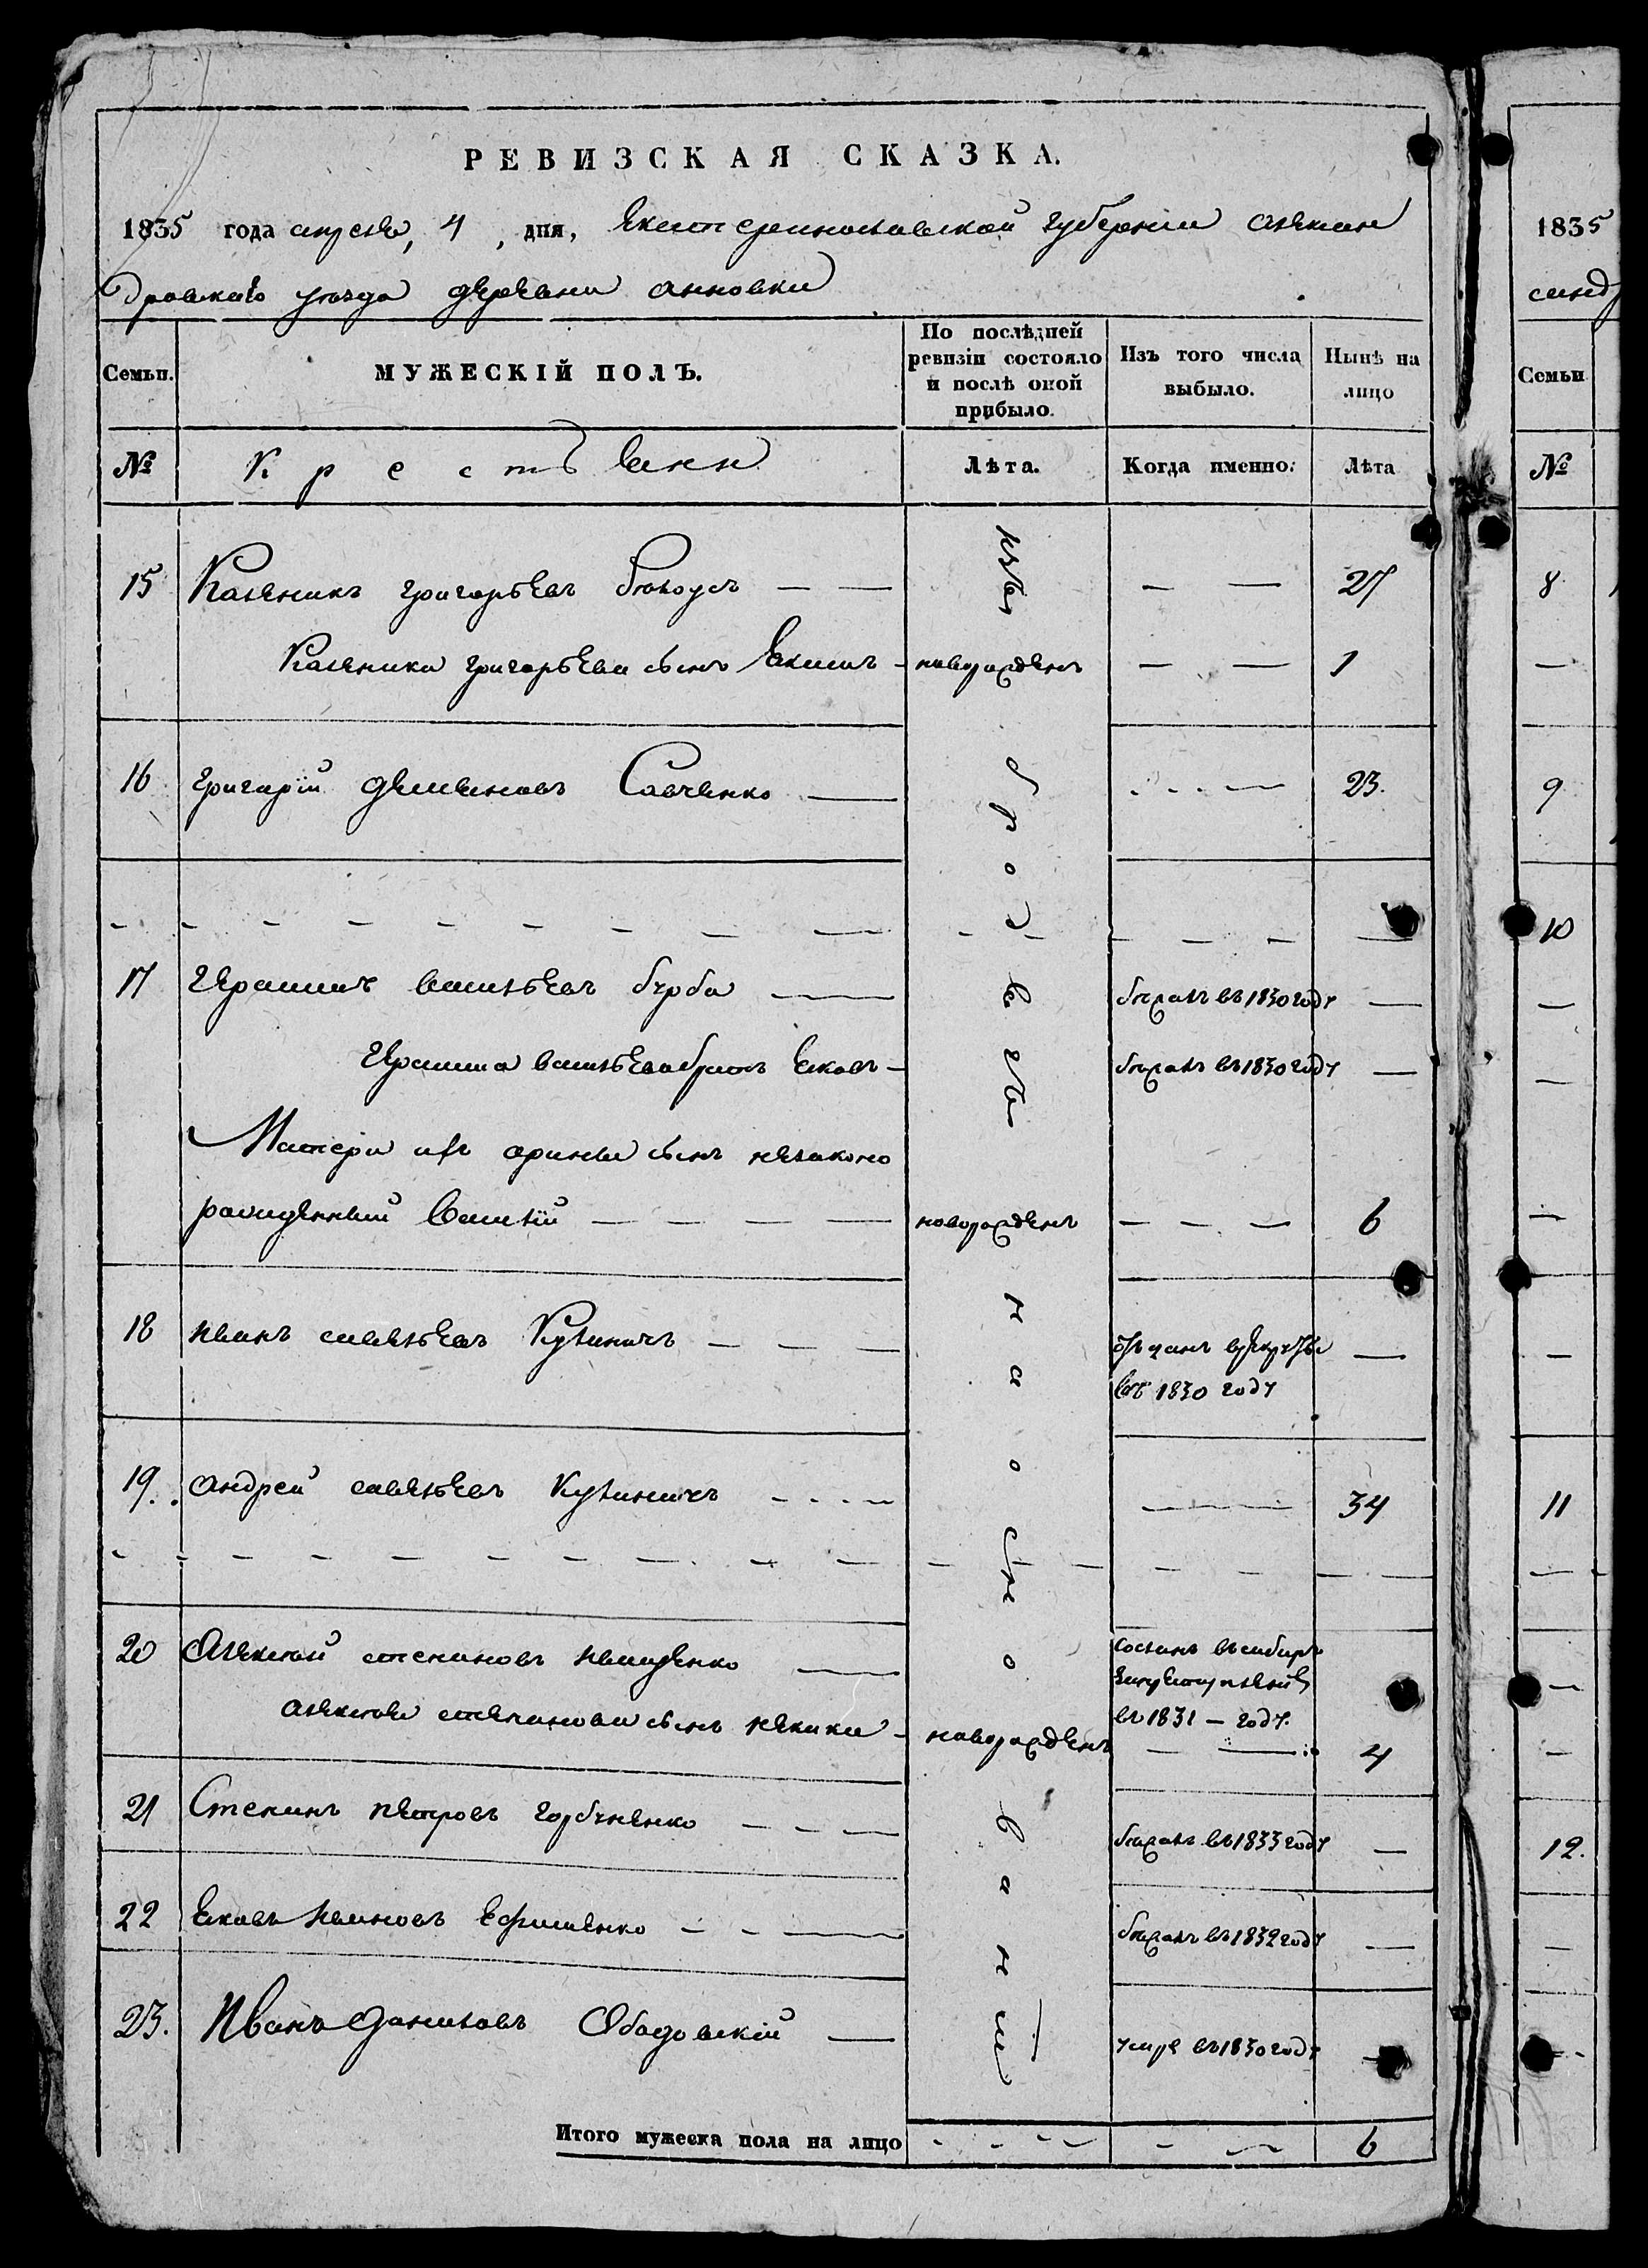 РЕВИЗСКАЯ СКАЗКА.
1835 года апреля, 4, дня, Екатеринославской губернии алексан
дровскаго уезда деревни анновки
Семьи. МУЖЕСКІЙ ПОЛЪ. По послѣдней ревизіи состояло и послѣ оной прибыло. Изъ того числа выбыло. Нынѣ на лицо
№ Крестьянн Лѣта. Когда именно. Лѣта
15 Каленикъ григорьевъ — — изъ — — 27
Каленика григорьева сынъ Екимъ - новорожденъ — — 1
16 григорій деменовъ Савченко — бродягъ 23.
17 Герасимъ васильевъ бурба — бежалъ въ 1830 году —
Герасима васильева братъ Ековъ - бежалъ въ 1830 году —
Матери ихъ орины сынъ незаконо
рожденный Василій — — — — новорожденъ — — — 6
18 иванъ савельевъ Кулиничъ — — — на основании отданъ врекруты —
въ 1830 году
19. андрей савельевъ Кулиничъ 34
20 Алексей степановъ иващенко — сосланъ въ сибирь
въ 1831 — году.
алексея степанова сынъ никита - новорожденъ — — 4
21 Степанъ петровъ горбуненко — — — бежалъ въ 1833 году —
22 Ековъ ивановъ Ефименко — — — бежалъ въ 1832 году —
23. Иванъ даниловъ Ободовскій — умре въ 1830 году
Итого мужеска пола на лицо 6
1835
санд
Семьи
№
8
—
9
10
—
—
—
—
11
—
—
—
12.
—